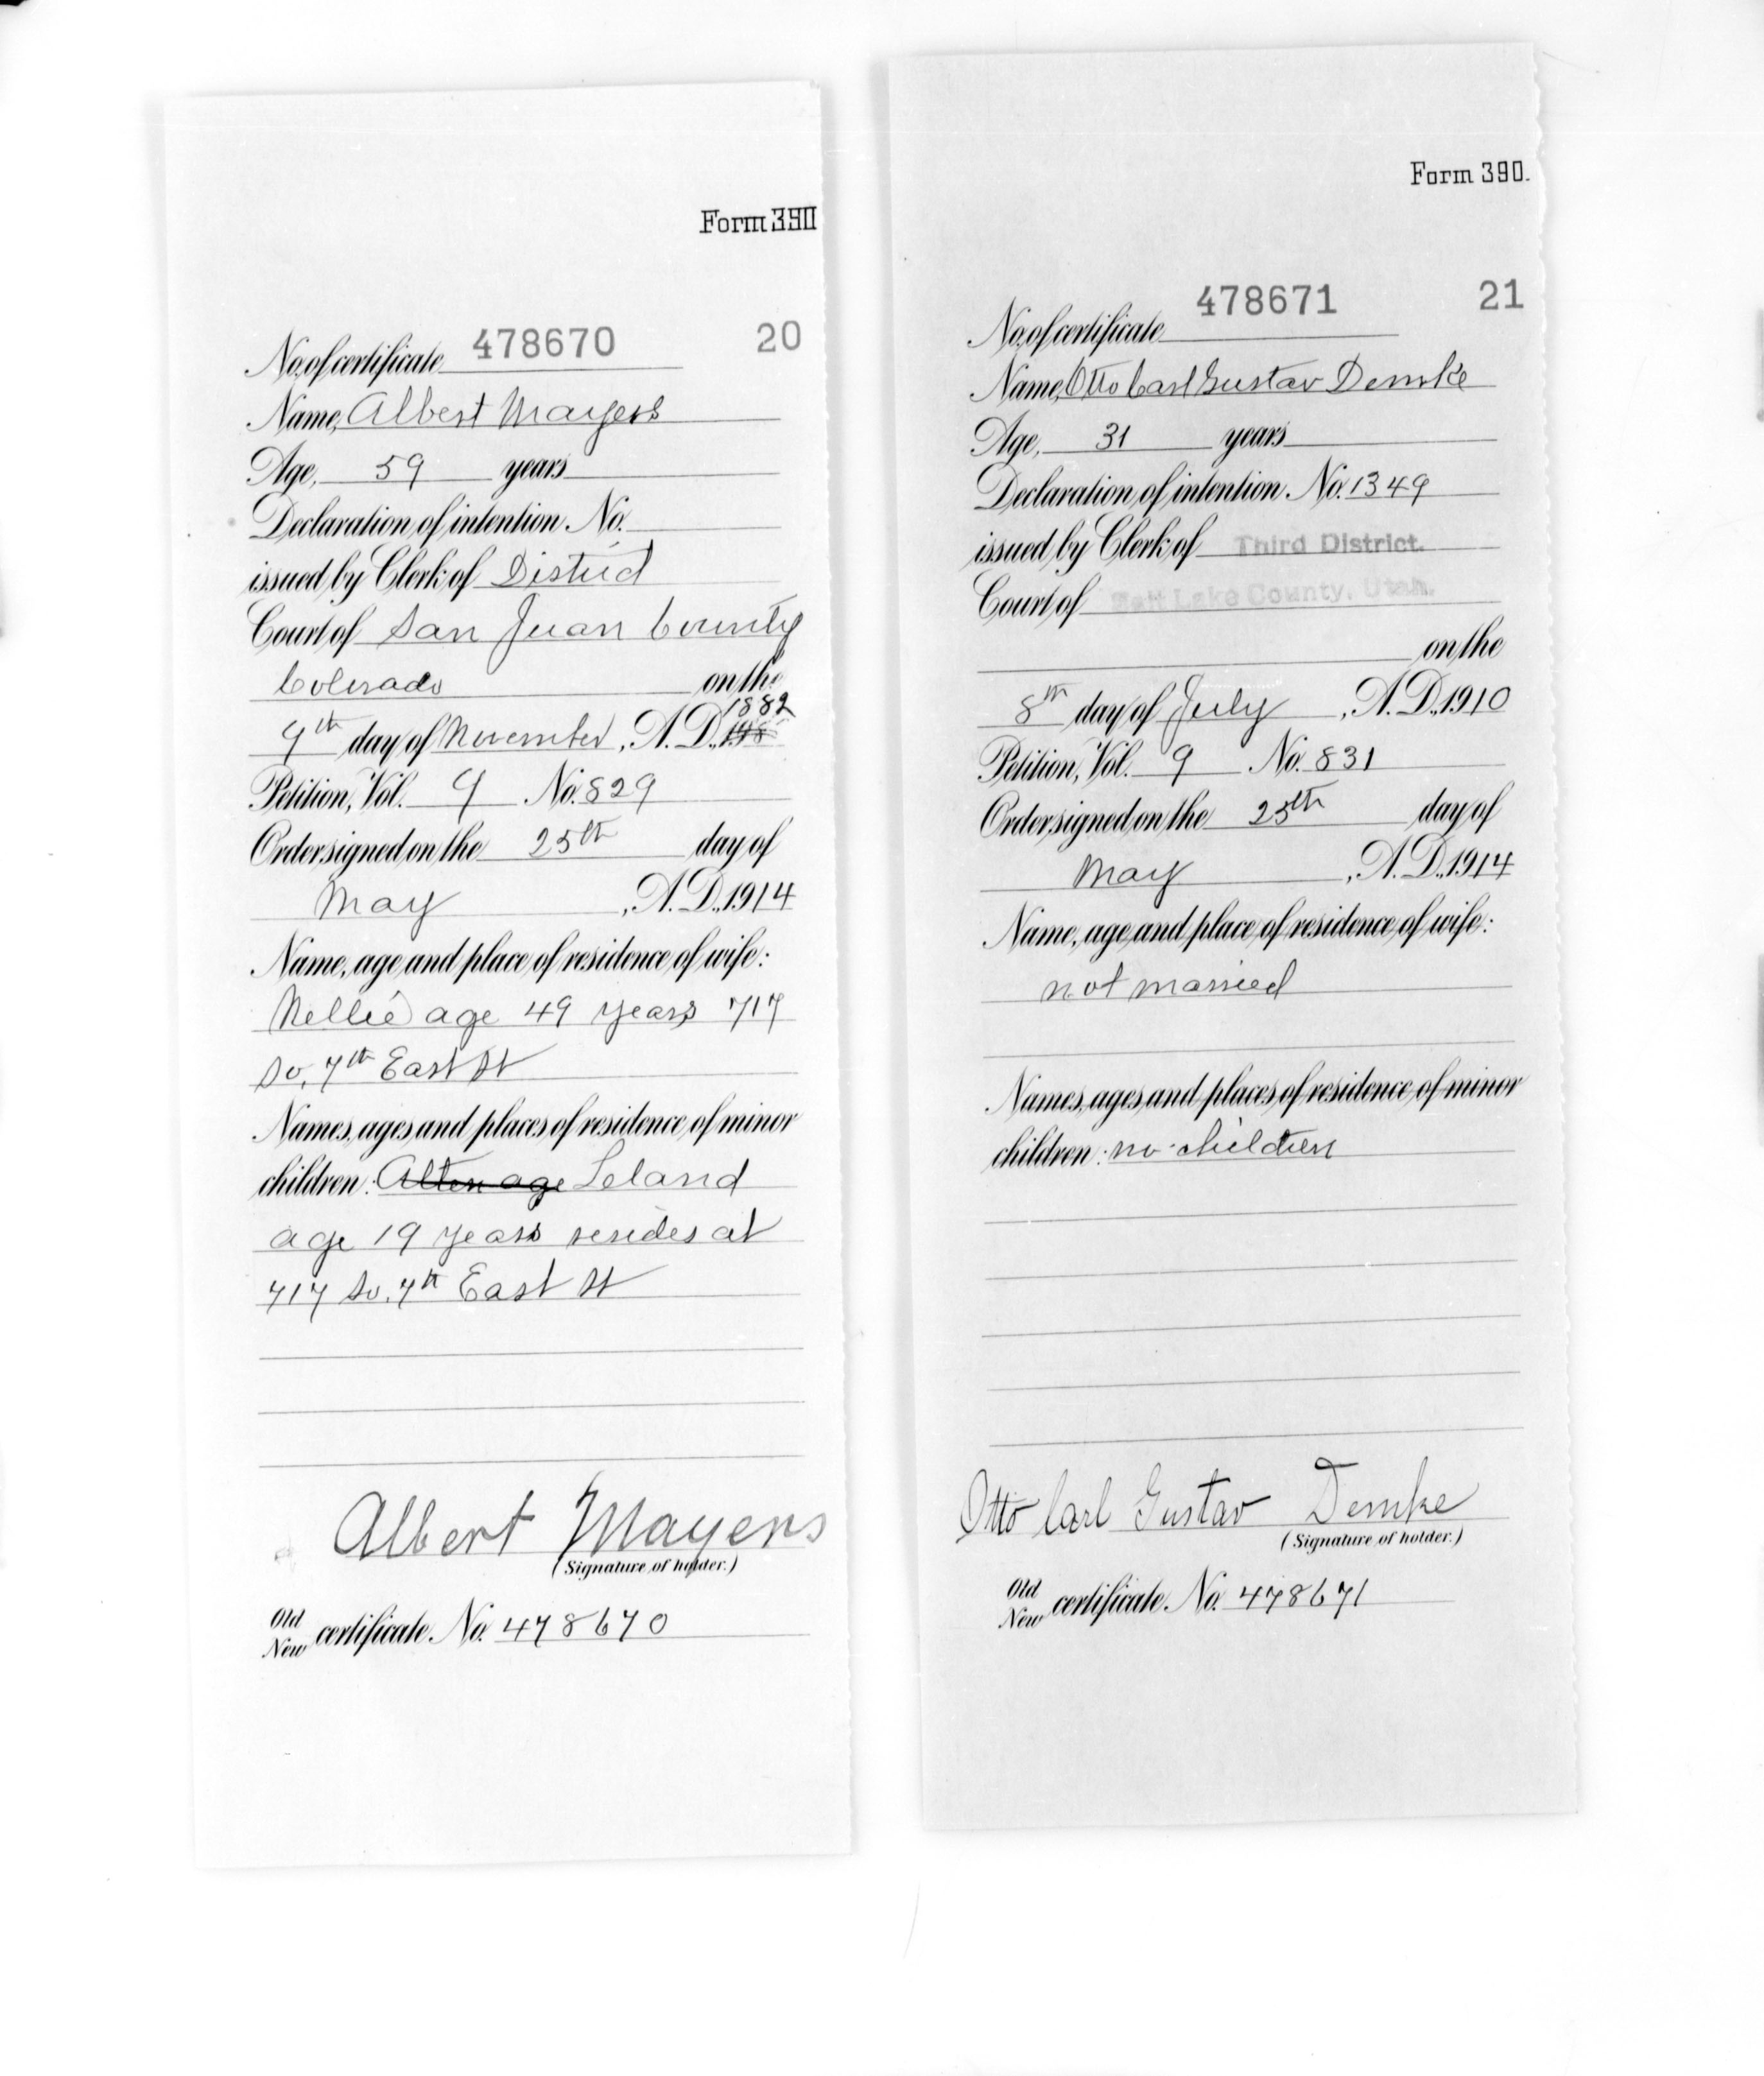 Form 390
478670 20
No. of certificate
Name, Albert Mayers
Age, 59 years
Declaration of intention No.
issued by Clerk of District
Court of San Juan County
Colorado on the
1882
day of November, A. D.,
Petition, Vol. 9 No. 829
Order signed on the 25th day of
May, A. D., 1914
Name, age and place of residence of wife:
Nellie age 49 years 717
So. 7th East St
Names, ages and places of residence of minor
children: Leland
age 19 years resides at
717 So. 7th East St
Albert Mayers
(Signature of holder.)
Old
New certificate No. 478670
Form 390.
478671 21
No. of certificate
Name, Otto Carl Gustav Demke
Age, 31 years
Declaration of intention No. 1349
issued by Clerk of Third District.
Court of Salt Lake County, Utah.
on the
8th day of July, A. D., 1910
Petition, Vol. 9 No. 831
Order signed on the 25th day of
May, A. D., 1914
Name, age and place of residence of wife:
not married
Names, ages and places of residence of minor
children: no children
Otto Carl Gustav Demke
(Signature of holder.)
Old
New certificate No. 478671